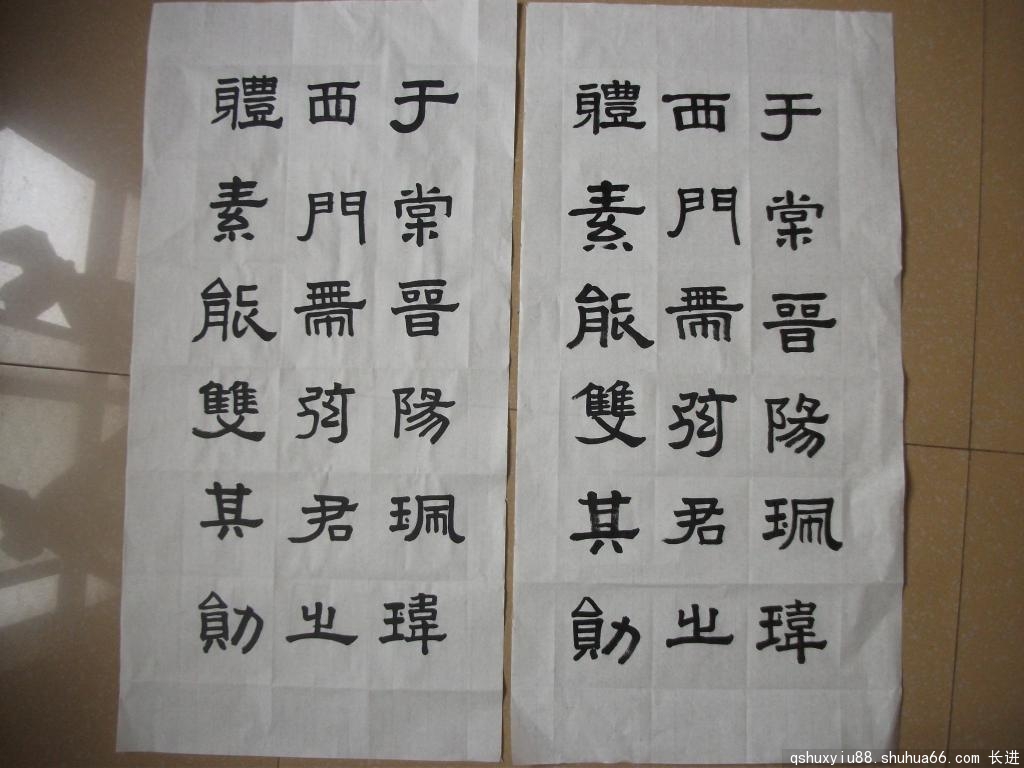 于棠晉陽珮瑋
西門帶弦君之
體素能雙其勛
于棠晉陽珮瑋
西門帶弦君之
體素能雙其勛
qshuxyiu88.shuhua66.com 长进